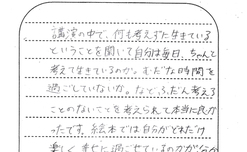 講演の中で、何も考えずに生きている
ということを聞いて自分は毎日、ちゃんと
考えて生きているのか。むだな時間を
過ごしていないか。などふだん考える
ことのないことを考えられて本当に良か
ったです。絵本では自分がどれだけ
楽しく幸せに過ごせているのかが分か